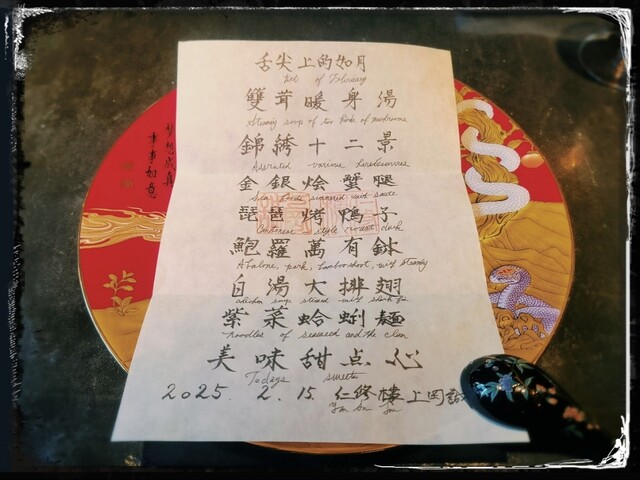 梦想成真
事事如意
舌尖上的如月
of February
雙茸暖身湯
Steamy soup of two kinds of mushrooms
錦綉十二景
various
金銀烩蟹腿
simmered with sauce
琵琶烤鴨子
Cantonese style roast duck
鮑羅萬有
Abalone, pork, bamboo shoot, with steamy
白湯大排翅
soup with shark fin
紫菜蛤蜊麺
Noodles of seaweed and the clam
美味甜点心
Todays sweets
2025. 2. 15. 仁修樓 上岡誠